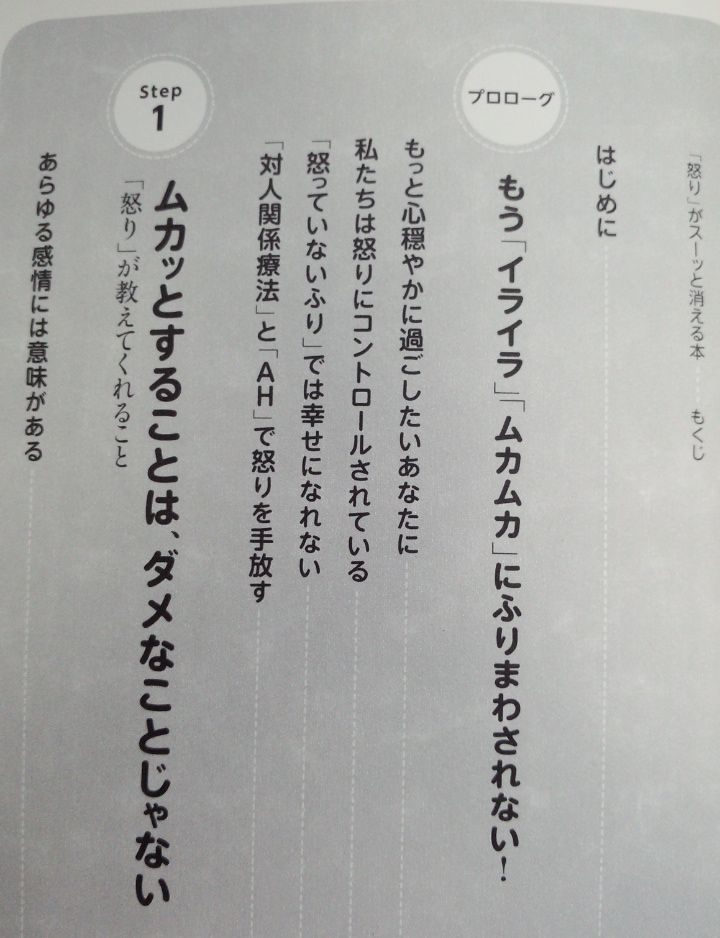 「怒り」がスーッと消える本 もくじ
はじめに
プロローグ
もう「イライラ」「ムカムカ」にふりまわされない!
もっと心穏やかに過ごしたいあなたに
私たちは怒りにコントロールされている
「怒っていないふり」では幸せになれない
「対人関係療法」と「AH」で怒りを手放す
Step
1
ムカッとすることは、ダメなことじゃない
「怒り」が教えてくれること
あらゆる感情には意味がある